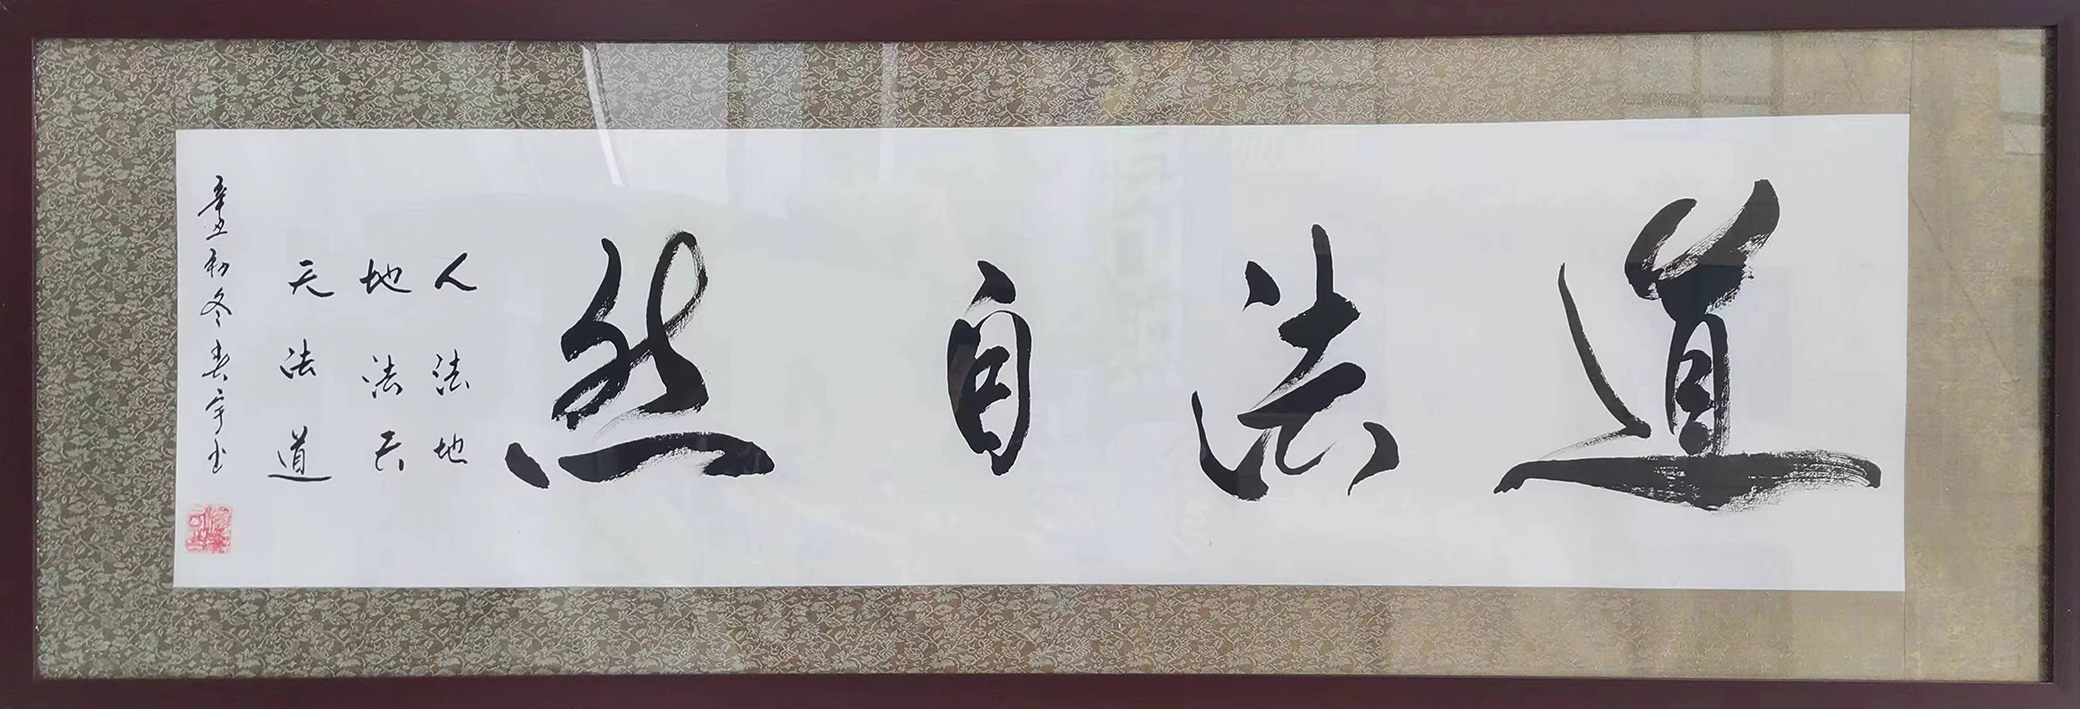 道法自然
人法地
地法天
天法道
辛丑初冬春宇书